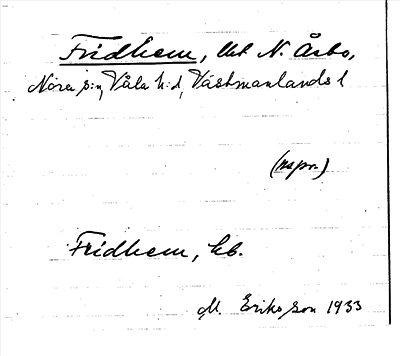 Fridhem, lht N. Åsbo,
Nora s:n, Våla h:d, Västmanlands l
(nspr.)
Fridhem, hb.
M. Eriksson 1933